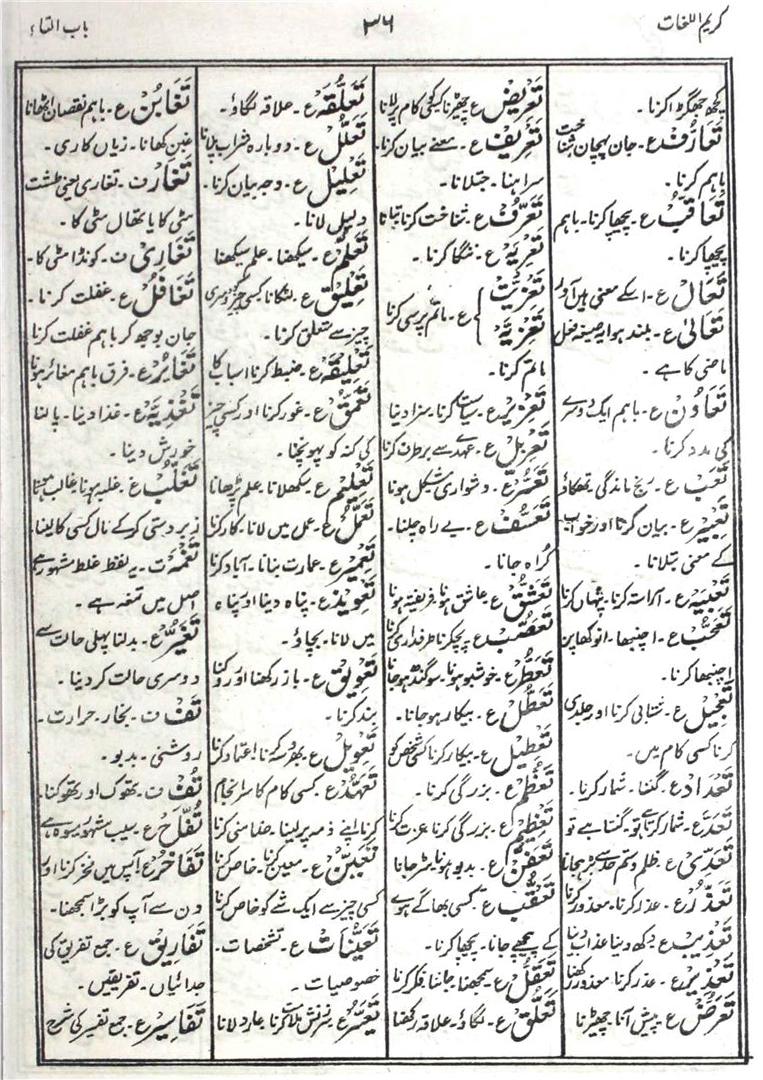 کریم اللغات
۳۶
باب التاء
کچھ جھگڑا کرنا۔
تعارُف ع۔ جان پہچان شناخت
باہم کرنا۔
تعاقُب ع۔ پیچھا کرنا۔ باہم
پیچھا کرنا۔
تعال ع۔ اسکے معنی ہیں آؤ
تعالیٰ ع۔ بلند ہوا یہ صیغہ فعل
ماضی کا ہے۔
تعاوُن ع۔ باہم ایک دوسرے
کی مدد کرنا۔
تعب ع۔ رنج ماندگی تھکاؤ
تعبیر ع۔ بیان کرنا اور خواب
کے معنی بتلانا۔
تعبیہ ع۔ آراستہ کرنا۔ پنہاں کرنا
تعجّب ع۔ اچنبھا۔ انوکھا پن
اچنبھا کرنا۔
تعجیل ع۔ شتابی کرنا اور جلدی
کرنا کسی کام میں۔
تعداد ع۔ گننا۔ شمار کرنا۔
تعدّ ع۔ شمار کرتا ہے تو۔ گنتا ہے تو
تعدّی ع۔ ظلم و ستم حد سے بڑھ جانا
تعذّر ع۔ عذر کرنا۔ معذور کرنا
تعذیب ع۔ دکھ دینا عذاب دینا
تعذیر ع۔ عذر کرنا۔ معذور رکھنا
تعرّض ع۔ پیش آنا۔ چھیڑنا
تعریض ع۔ چھیڑنا کسی کام پر لانا
تعریف ع۔ معنے بیان کرنا۔
سراہنا۔ جتلانا۔
تعرّف ع۔ شناخت کرنا بتانا
تعریہ ع۔ ننگا کرنا۔
تعزیت
تعزیہ } ع۔ ماتم پرسی کرنا
ماتم کرنا۔
تعزیر ع۔ سیاست کرنا۔ سزا دینا
تعزیل ع۔ عہدے سے برطرف کرنا
تعسّر ع۔ دشواری مشکل ہونا
تعسّف ع۔ بے راہ چلنا۔
گمراہ جانا۔
تعشّق ع۔ عاشق ہونا۔ فریفتہ ہونا
تعصّب ع۔ پچ کرنا طرفداری کرنا
تعطّر ع۔ خوشبو ہونا۔ سوگند ہو جانا
تعطّل ع۔ بیکار ہو جانا۔
تعطیل ع۔ بیکار کرنا کسی شخص کو
تعظّم ع۔ بزرگی کرنا۔
تعظیم ع۔ بزرگی کرنا عزت کرنا
تعفّن ع۔ بدبو ہونا سڑ جانا
تعقّب ع۔ کسی بھاگے ہوئے
کے پیچھے جانا۔ پیچھا کرنا۔
تعقّل ع۔ سمجھنا۔ جاننا فکر کرنا
تعلّق ع۔ لگاؤ۔ علاقہ رکھنا
تعلّقہ ع۔ علاقہ لگاؤ۔
تعلّل ع۔ دوبارہ شراب پلانا
تعلیل ع۔ وجہ بیان کرنا۔
دلیل لانا۔
تعلّم ع۔ سیکھنا۔ علم سیکھنا
تعلیق ع۔ لٹکانا کسی چیز کو دوسری
چیز سے متعلق کرنا۔
تعلیقہ ع۔ ضبط کرنا اسباب کا
تعمّق ع۔ غور کرنا اور کسی چیز
کی کنہ کو پہونچنا۔
تعلیم ع۔ سکھلانا۔ علم پڑھانا
تعمّل ع۔ عمل میں لانا۔ کار کرنا
تعمیر ع۔ عمارت بنانا۔ آباد کرنا
تعویذ ع۔ پناہ دینا اور پناہ
میں لانا۔ بچاؤ۔
تعویق ع۔ باز رکھنا اور روکنا
بند کرنا۔
تعویل ع۔ بھروسہ کرنا۔ اعتماد کرنا
تعہّد ع۔ کسی کام کا سرانجام
کرنا اپنے ذمہ پر لینا۔ ضامنی کرنا
تعیّن ع۔ معین کرنا۔ خاص کرنا
کسی چیز سے ایک شے کو خاص کرنا
تعیّنات ع۔ تشخصات۔
خصوصیات۔
تعیّر ع۔ سرزنش ملامت کرنا۔ عار دلانا
تغابُن ع۔ باہم نقصان اٹھانا
غبن کھانا۔ زیاں کاری۔
تغار ف۔ تغاری یعنی طشت
مٹی کا یا تھال مٹی کا۔
تغاری ف۔ کونڈا مٹی کا۔
تغافُل ع۔ غفلت کرنا۔
جان بوجھ کر باہم غفلت کرنا
تغایُر ع۔ فرق باہم مغائر ہونا
تغذیہ ع۔ غذا دینا۔ پالنا
خورش دینا۔
تغلّب ع۔ غلبہ ہونا غالب ہونا
زبردستی کر کے مال کسی کا لینا۔
تغمہ ت۔ یہ لفظ غلط مشہور ہے
اصل میں تمغہ ہے۔
تغیّر ع۔ بدلنا پہلی حالت سے
دوسری حالت کر دینا۔
تف ف۔ بخار۔ حرارت۔
روشنی۔ بدبو۔
تُف ف۔ تھوک اور تھوکنا۔
تُفّاح ع۔ سیب مشہور میوہ ہے
تفاخر ع۔ آپس میں فخر کرنا اور
دن سے آپ کو بڑا سمجھنا۔
تفاریق ع۔ جمع تفریق کی
جدائیاں۔ تفریقیں۔
تفاسیر ع۔ جمع تفسیر کی شرح